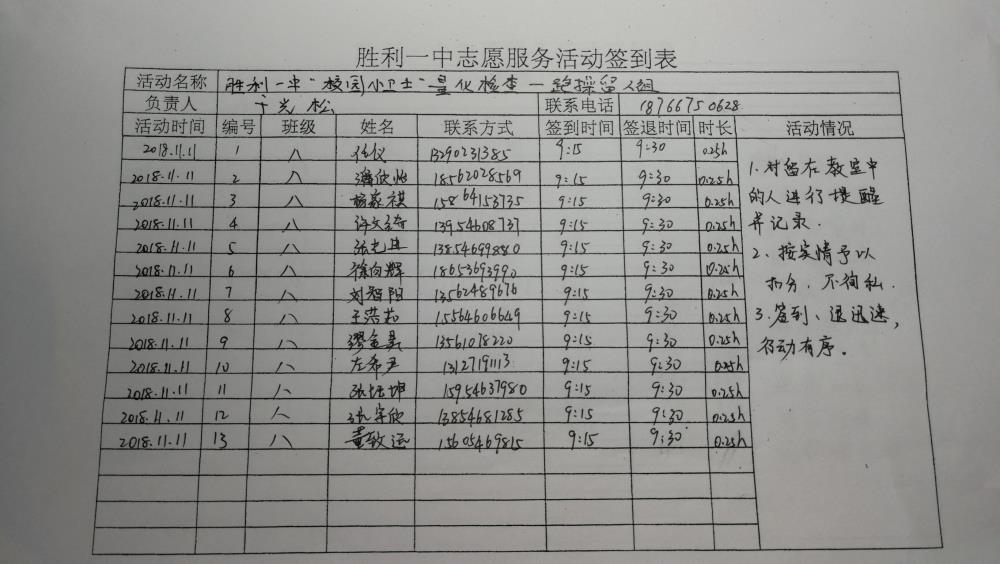 胜利一中志愿服务活动签到表
活动名称 胜利一中“校园小卫士”量化检查—跑操留人组
负责人 于光松 联系电话 18766750628
活动时间 编号 班级 姓名 联系方式 签到时间 签退时间 时长 活动情况
2018.11.11 1 八 任仪 13290231385 9:15 9:30 0.25h
2018.11.11 2 八 潘欣怡 18562028569 9:15 9:30 0.25h
2018.11.11 3 八 杨家祺 15864153735 9:15 9:30 0.25h
2018.11.11 4 八 许文 13954608737 9:15 9:30 0.25h
2018.11.11 5 八 13854699880 9:15 9:30 0.25h
2018.11.11 6 八 徐向辉 18653693990 9:15 9:30 0.25h
2018.11.11 7 八 刘智阳 13562489676 9:15 9:30 0.25h
2018.11.11 8 八 15564606649 9:15 9:30 0.25h
2018.11.11 9 八 13561078220 9:15 9:30 0.25h
2018.11.11 10 八 左希尹 13127191113 9:15 9:30 0.25h
2018.11.11 11 八 张坤 15954637980 9:15 9:30 0.25h
2018.11.11 12 八 张宇欣 13854681285 9:15 9:30 0.25h
2018.11.11 13 八 董致远 15605469815 9:15 9:30 0.25h
1.对留在教室中
的人进行提醒
并记录.
2、按实情予以
扣分，不徇私.
3.签到、退迅速，
行动有序。